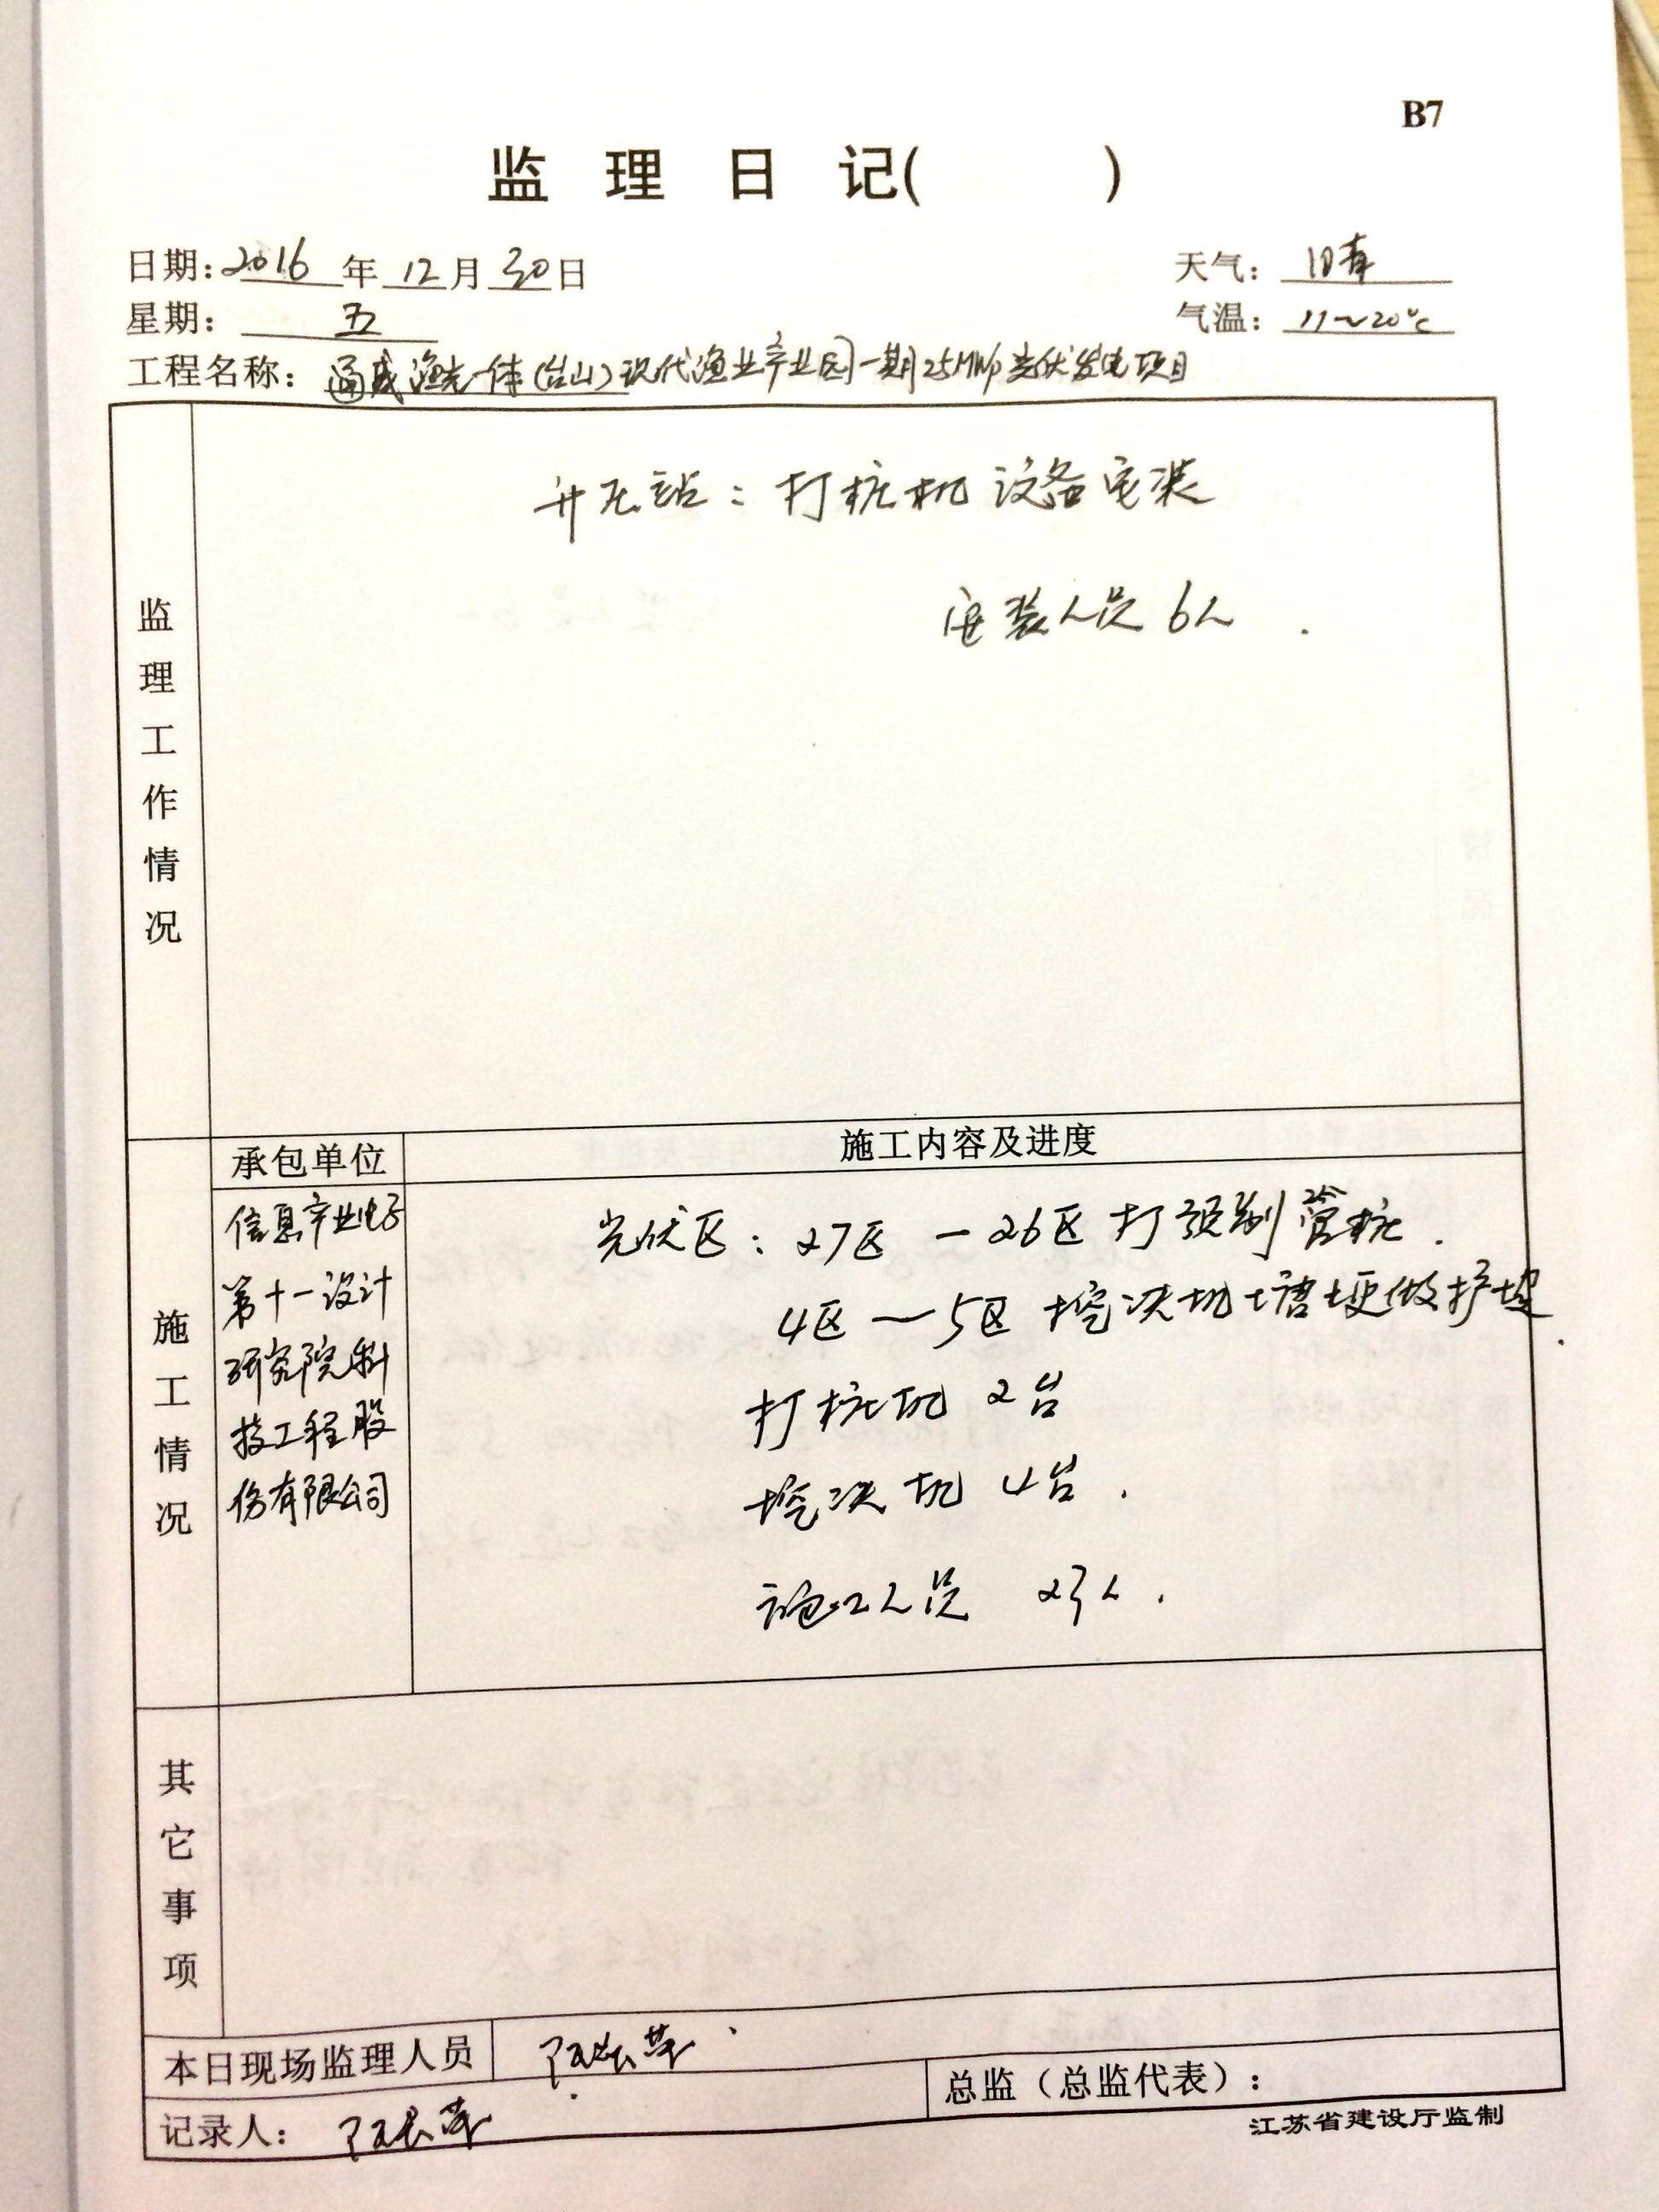 B7
监 理 日 记( )
日期：2016 年 12 月 30 日
天气：晴
星期：五
气温：11～20℃
工程名称：通威渔光一体(台山)现代渔业产业园一期25MWp光伏发电项目
监理工作情况
升压站：打桩机设备安装
安装人员 6人.
承包单位
施工内容及进度
施工情况
信息产业电子
第十一设计
研究院科
技工程股
份有限公司
光伏区：27区－26区打预制管桩.
4区～5区 挖决机塘埂做护埂.
打桩机 2台
挖决机 4台.
施工人员 23人.
其它事项
本日现场监理人员
记录人：
总监（总监代表）：
江苏省建设厅监制